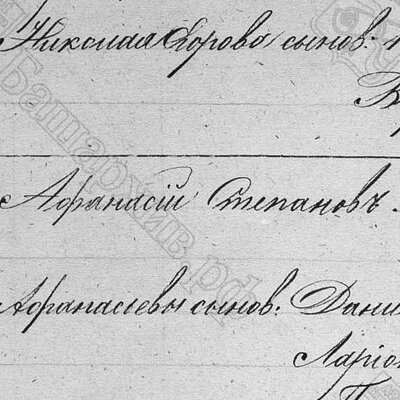 Николая Егорова сынов:
В
Афанасій Степановъ.
Афанасьевы сынов: Дани
Ларіо
П
Башархив.рф